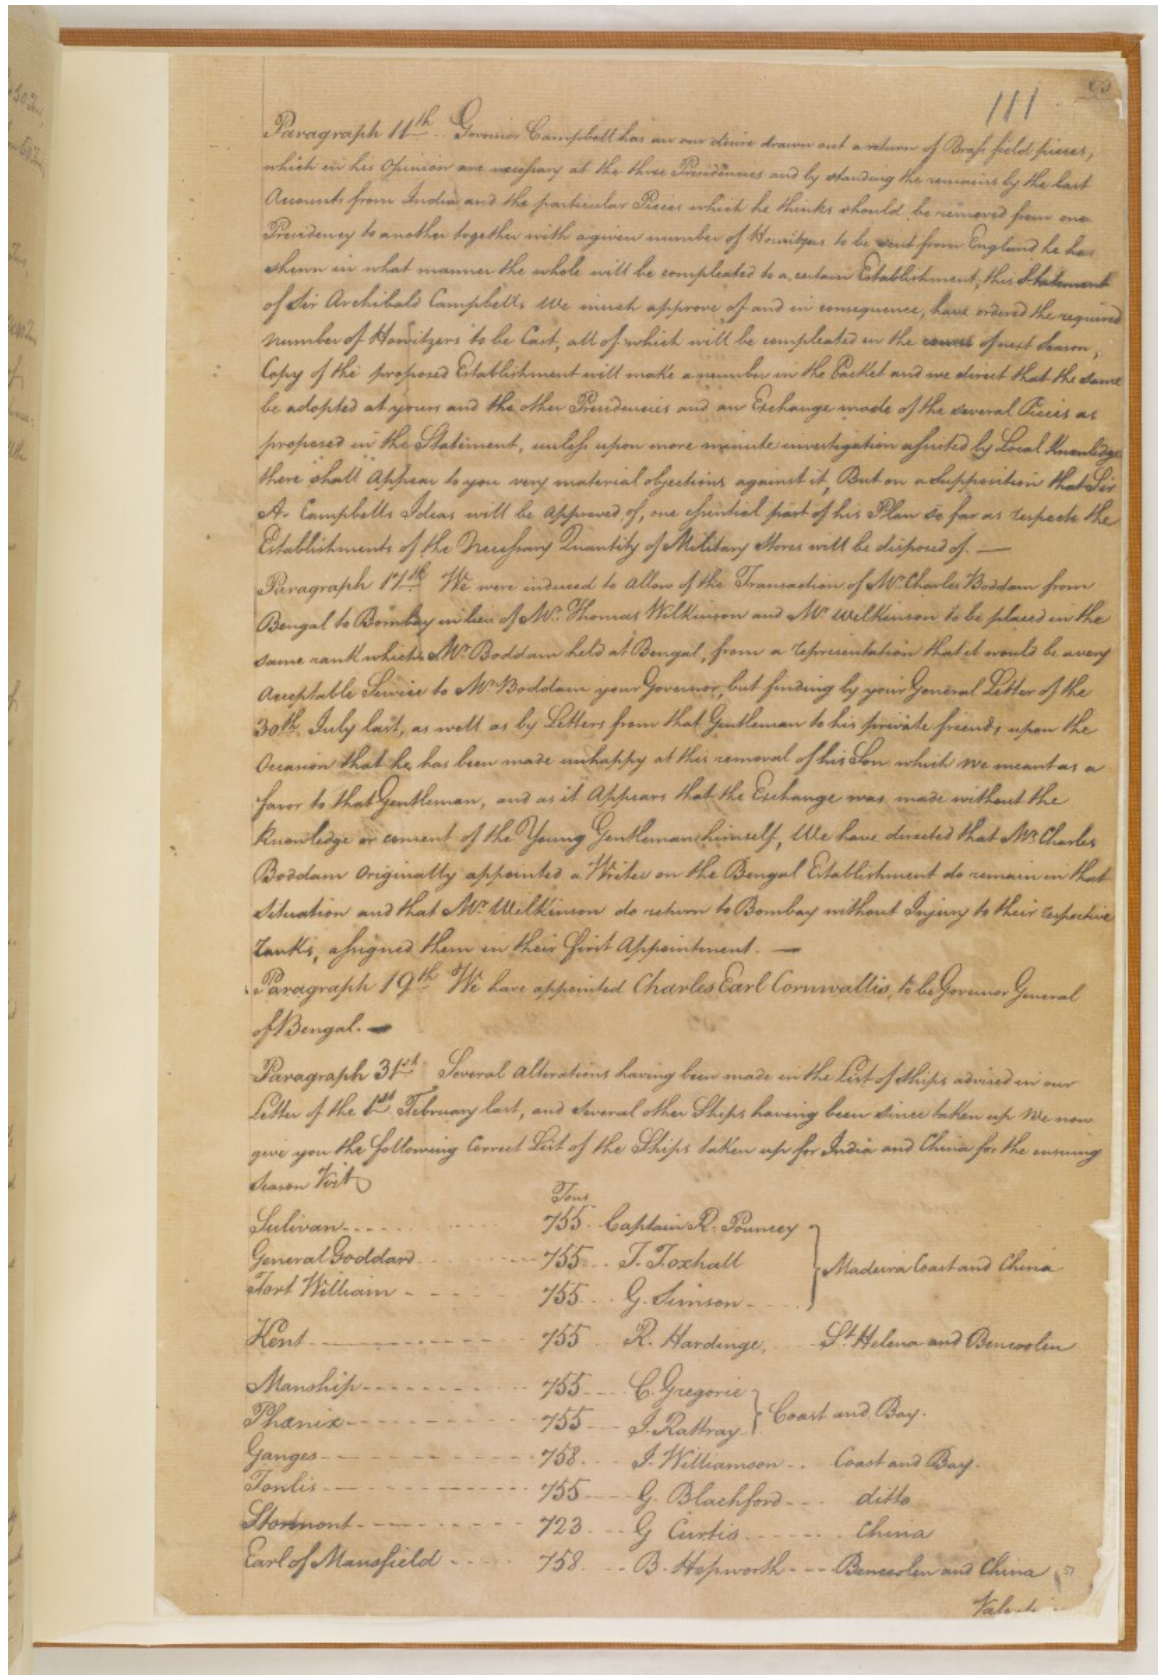 111
Paragraph 11th Governor Campbell has an our desire drawn out a return of Brass field pieces,
which in his Opinion are necessary at the three Presidencies and by standing the remains by the last
Accounts from India and the particular Pieces which he thinks should be removed from one
Presidency to another together with a given number of Howitzers to be sent from England he has
shewn in what manner the whole will be compleated to a certain Establishment, this Statement
of Sir Archibald Campbells We much approve of and in consequence, have ordered the required
number of Howitzers to be Cast, all of which will be compleated in the course of next Season,
Copy of the proposed Establishment will make a number in the Packet and we direct that the same
be adopted at yours and the other Presidencies and an Exchange made of the several Pieces as
proposed in the Statement, unless upon more minute investigation assisted by Local Knowledge
there shall Appear to you very material objections against it, But on a Supposition that Sir
A. Campbells Ideas will be approved of, one essential part of his Plan so far as respects the
Establishments of the Necessary Quantity of Military Stores will be disposed of. —
Paragraph 17th We were induced to allow of the Transaction of Mr. Charles Boddam from
Bengal to Bombay in lieu of Mr. Thomas Wilkinson and Mr. Wilkinson to be placed in the
same rank which Mr. Boddam held at Bengal, from a representation that it would be a very
Acceptable Service to Mr. Boddam your Governor, but finding by your General Letter of the
30th. July last, as well as by Letters from that Gentleman to his private friends, upon the
Occasion that he has been made unhappy at this removal of his Son which we meant as a
favor to that Gentleman, and as it Appears that the Exchange was made without the
Knowledge or consent of the Young Gentleman himself, We have directed that Mr. Charles
Boddam Originally appointed a Writer on the Bengal Establishment do remain in that
Situation and that Mr. Wilkinson do return to Bombay without Injury to their respective
ranks, assigned them in their first Appointment. —
Paragraph 19th We have appointed Charles Earl Cornwallis, to be Governor General
of Bengal. —
Paragraph 31st Several Alterations having been made in the List of Ships advised in our
Letter of the 1st February last, and several other Ships having been since taken up We now
give you the following Correct List of the Ships taken up for India and China for the ensuing
Season Vizt
Tons
Sulivan 755 Captain R. Pouncey
General Goddard 755 T. Foxhall
Madeira Coast and China
Fort William 755 G. Simson
Kent 755 R. Hardinge, St. Helena and Bencoolen
Manship 755 C. Gregorie
Coast and Bay.
Phœnix 755 J. Rattray
Ganges 758 J. Williamson Coast and Bay.
755 G. Blachford ditto
Stormont 723 G Curtis China
Earl of Mansfield 758 B. Hepworth Bencoolen and China